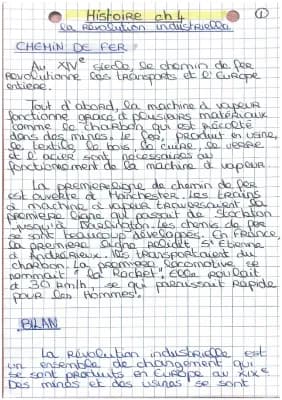 Histoire ch 4
①
La Révolution industrielle
CHEMIN DE FER
Au XIVe siecle, le chemin de fer
révolutionne les transports et l'Europe
entiere.
Tout d'abord, la machine à vapeur
fonctionne grace à plusieurs matériaux
comme le charbon qui est récolté
dans des mines. Le fer, produit en usine,
le textile, le bois, le cuire, le verre
et l'acier sont nécessaires au
fonctionnement de la machine à vapeur.
La premiere ligne de chemin de fer
est ouverte à Manchester. Les trains
à machine à vapeur traversaient la
premiere ligne qui passait de Stockton
jusqu'à
se sont beaucoup développés. En France,
la premiere ligne reliait St Etienne
à Andrézieux. Ils transportaient du
charbon. La premiere locomotive se
nommait "la Rocket". Elle roulait
à 30 km/h, se qui paraissait rapide
pour les hommes.
BILAN
La Révolution industrielle est
un ensemble de changement qui
se sont produits en Europe au XIXe
Des mines et des usines se sont